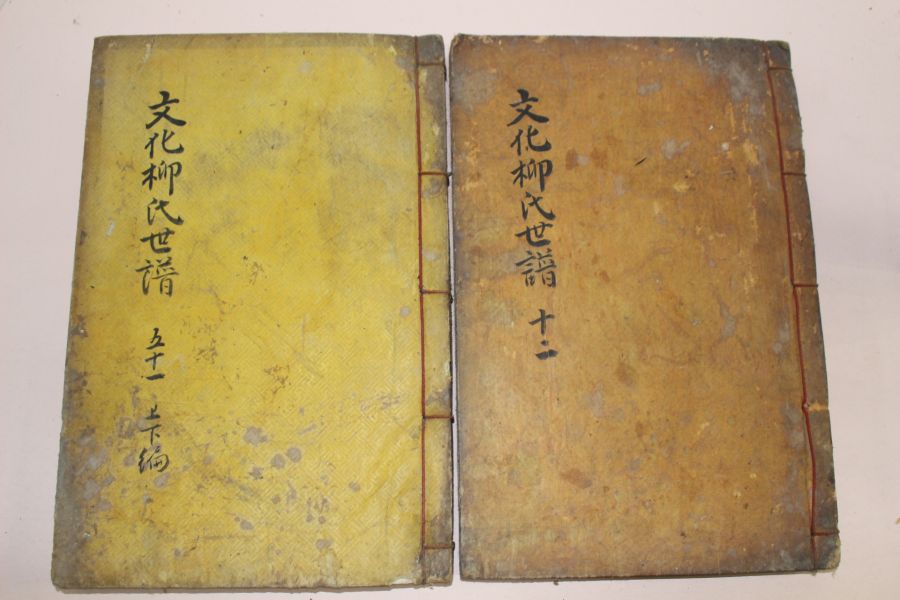 文化柳氏世譜 十二
文化柳氏世譜 五十一 上下編